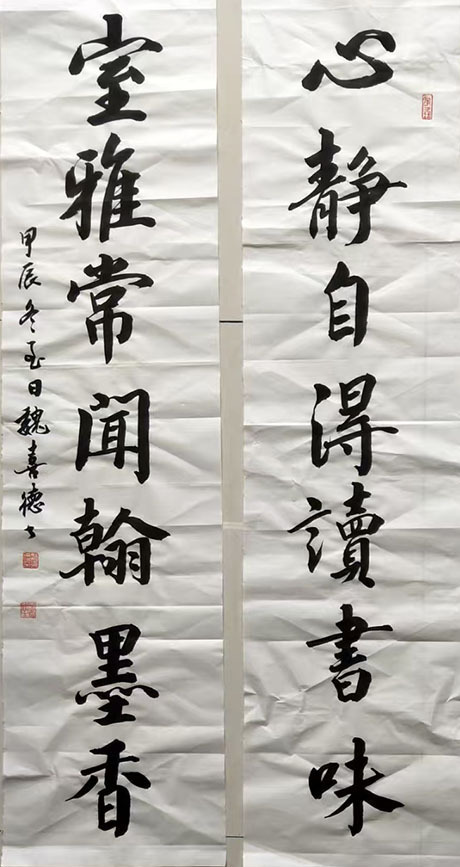 心靜自得讀書味
室雅常聞翰墨香
甲辰冬至日魏喜德书